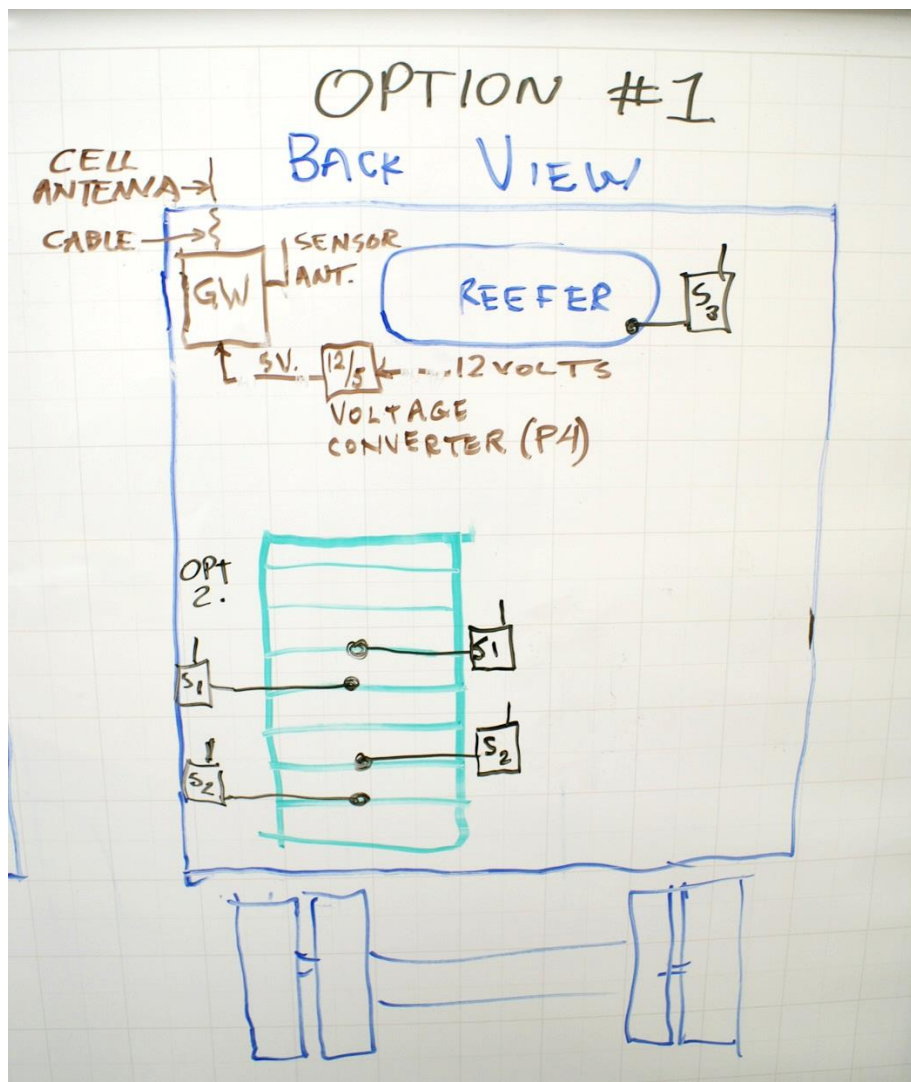 OPTION #1
BACK VIEW
CELL
ANTENNA
CABLE
GW
SENSOR
ANT.
REEFER
S3
5V.
12/5
12 VOLTS
VOLTAGE
CONVERTER (P4)
OPT
2.
S1
S1
S2
S2